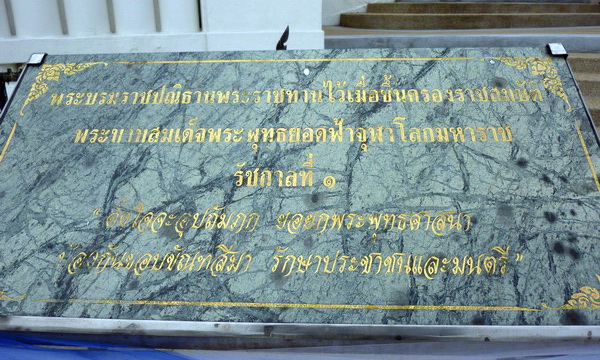 พระบรมราชปณิธานพระราชทานไว้เมื่อขึ้นครองราชสมบัติ
พระบาทสมเด็จพระพุทธยอดฟ้าจุฬาโลกมหาราช
รัชกาลที่ ๑
"ตั้งใจจะอุปถัมภก ยอยกพระพุทธศาสนา
ป้องกันขอบขัณฑสีมา รักษาประชาชนและมนตรี"